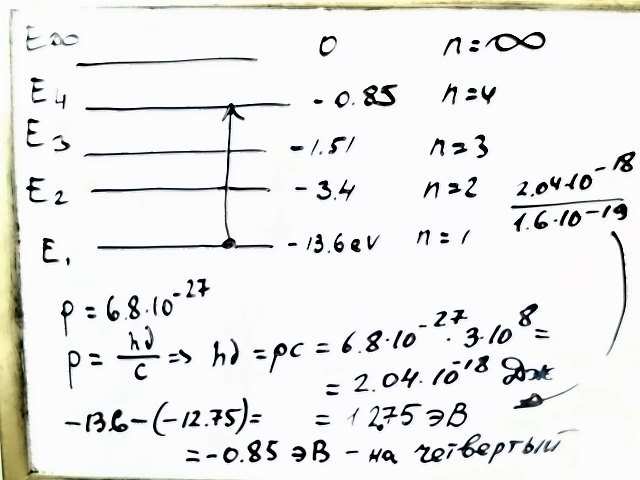 E∞ 0 n=∞
E4 -0.85 n=4
E3 -1.51 n=3
E2 -3.4 n=2
E1 -13.6 eV n=1
2.04·10^-18
1.6·10^-19
p = 6.8·10^-27
p = hν/c => hν = pc = 6.8·10^-27 · 3·10^8 =
= 2.04·10^-18 Дж
-13.6-(-12.75)= = 12.75 эВ
= -0.85 эВ - на четвертый